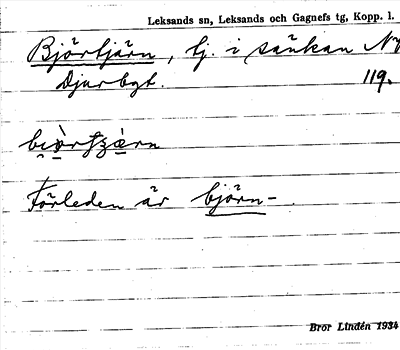 Leksands sn, Leksands och Gagnefs tg, Kopp. l.
Björtjärn, tj. i sänkan N
Djurbgt. 119.
Förleden är björn-.
Bror Lindén 1934